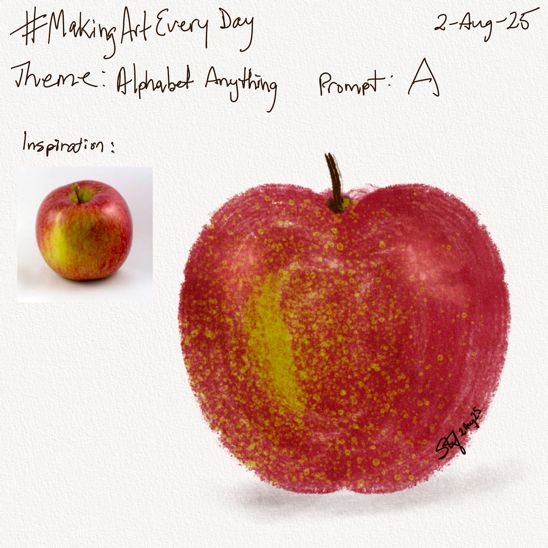 #MakingArtEveryDay 2-Aug-25
Theme: Alphabet Anything Prompt: A
Inspiration:
2Aug25